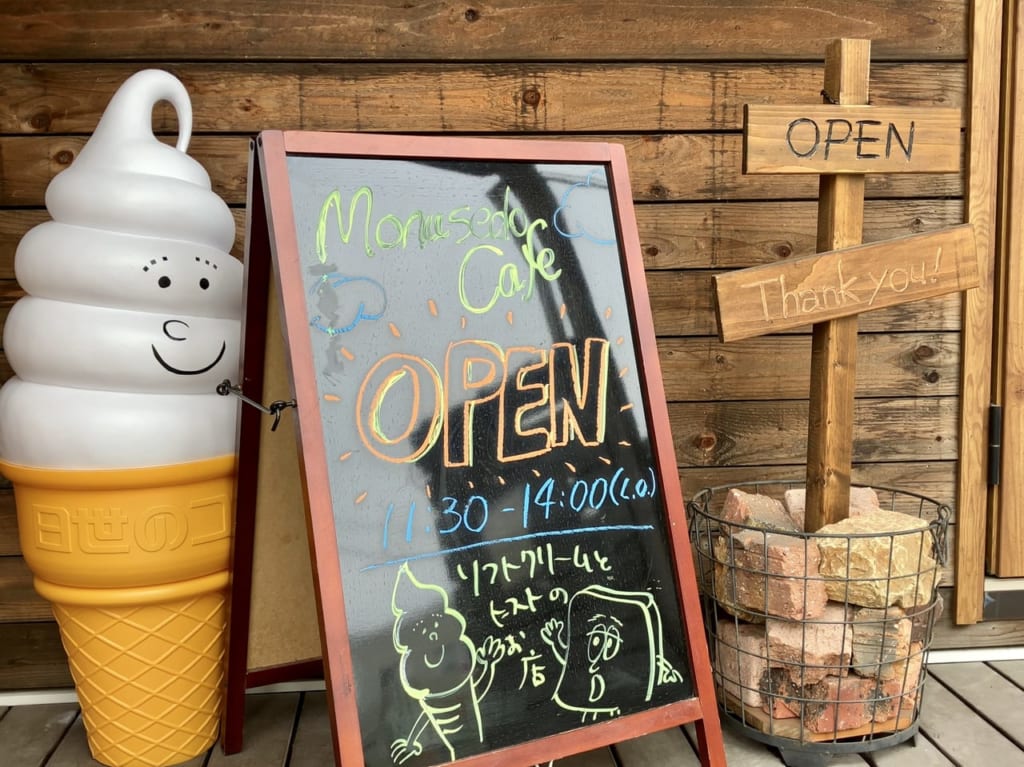 Monusedo
Cafe
OPEN
11:30 - 14:00 (L.O.)
ソフトクリームと
トストの
お店
OPEN
Thank you!
日世のコ